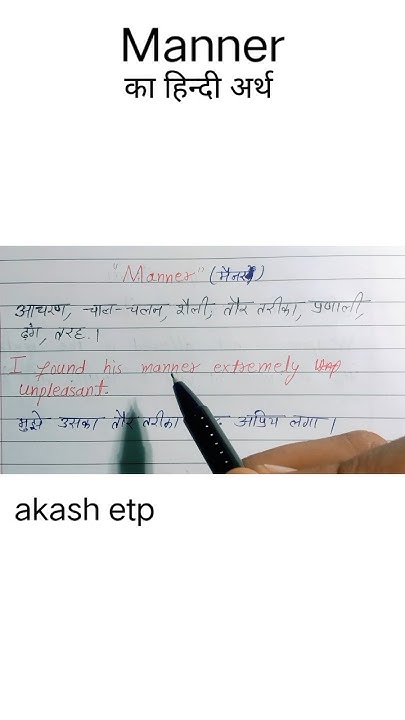 Manner
का हिन्दी अर्थ
"Manner" (मैनर)
आचरण, चाल-चलन, शैली, तौर तरीका, प्रणाली,
ढंग, तरह।
I found his manner extremely
unpleasant.
मुझे उसका तौर तरीका अप्रिय लगा।
akash etp